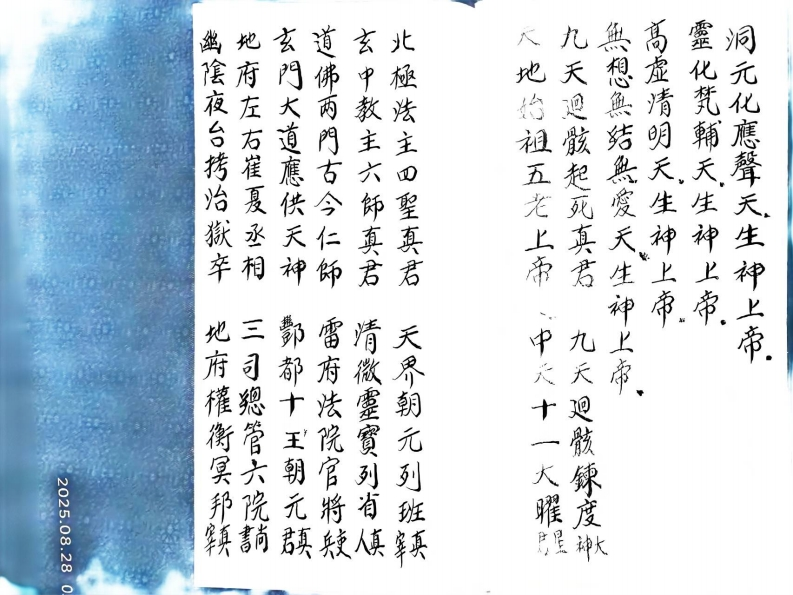 洞元化應聲天生神上帝
靈化梵輔天生神上帝
高虛清明天生神上帝
無想無結無愛天生神上帝
九天迴骸起死真君 九天迴骸鍊度大神
天地始祖五老上帝 中天十一大曜星君
北極法主四聖真君 天界朝元列班真宰
玄中教主六師真君 清微靈寶列省真人
道佛兩門古今仁師 雷府法院官將吏兵
玄門大道應供天神 酆都十王朝元真君
地府左右崔夏丞相 三司總管六院尚書
幽陰夜台拷治獄卒 地府權衡冥邦真宰
2025.08.28